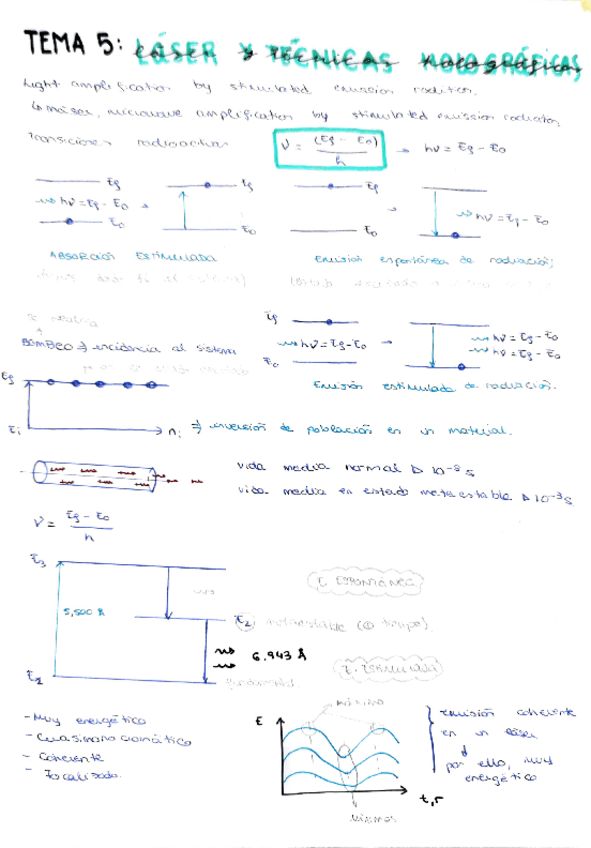 TEMA 5: LÁSER Y TÉCNICAS HOLOGRÁFICAS
Light amplification by stimulated emission radiation.
↳ maser, microwave amplification by stimulated emission radiation
Transiciones radioactivas ν = (Eg - E0) / h → hν = Eg - E0
Eg
hν = Eg - E0 →
E0
Eg
E0
Eg
E0
→
hν = Eg - E0
ABSORCIÓN ESTIMULADA
Emisión espontánea de radiación;
BOMBEO → incidencia al sistema
Eg
hν = Eg - E0 →
E0
hν = Eg - E0
hν = Eg - E0
Emisión estimulada de radiación.
Eg
Ei
ni ⇒ inversión de población en un material.
vida media normal ▷ 10⁻⁸ s
vida media en estado metaestable ▷ 10⁻³ s
ν = Eg - E0 / h
E3
E. ESPONTÁNEA
5,500 Å
E2 metaestable (⊕ tiempo)
6.943 Å
E. ESTIMULADA
E2
fundamental
- Muy energético
- Cuasimonocromático
- Coherente
- Focalizado.
E
máximo
t, r
mismos
emisión coherente
en un láser
por ello, muy
energético